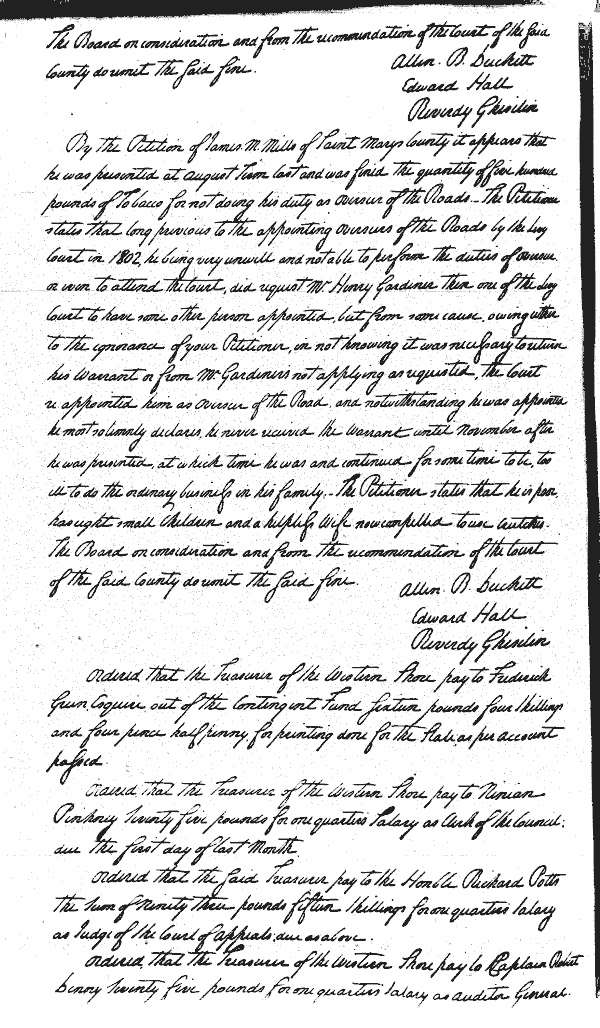 The Board on consideration and from the recommendation of the Court of the Said
County do remit the Said fine.
Allen. B. Duckett
Edward Hall
Reverdy Ghiselin
By the Petition of James M Mills of Saint Marys County it appears that
he was presented at August Term last and was fined the quantity of five hundred
pounds of Tobacco for not doing his duty as Overseer of the Roads. The Petitioner
states that long previous to the appointing overseers of the Roads by the Levy
Court in 1802, he being very unwell and not able to perform the duties of overseer
or even to attend the Court, did request Mr Henry Gardiner then one of the Levy
Court to have some other person appointed, but from some cause, owing either
to the ignorance of your Petitioner, in not knowing it was necessary to return
his Warrant or from Mr Gardiners not applying as requested, the Court
re appointed him as Overseer of the Road, and notwithstanding he was appointed
he most solemnly declares, he never received the Warrant until November after
he was presented, at which time he was and continued for some time to be, too
ill to do the ordinary business in his family. The Petitioner states that he is poor,
has eight small Children and a helpless Wife now compelled to use Crutches.
The Board on consideration and from the recommendation of the Court
of the Said County do remit the Said fine.
Allen. B. Duckett
Edward Hall
Reverdy Ghiselin
Ordered that the Treasurer of the Western Shore pay to Frederick
Green Esquire out of the Contingent Fund Sixteen pounds four Shillings
and four pence half penny, for printing done for the State, as per account
passed.
Ordered, that the Treasurer of the Western Shore pay to Ninian
Pinkney Seventy five pounds for one quarters Salary as Clerk of the Council;
due the first day of last Month.
Ordered that the Said Treasurer pay to the Honble Richard Potts
the Sum of Ninety three pounds fifteen Shillings for one quarters Salary
as Judge of the Court of Appeals, due as above.
Ordered, that the Treasurer of the Western Shore pay to Captain Robert
Denny Seventy five pounds for one quarters Salary as Auditor General.